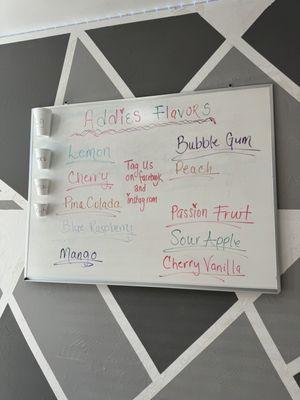 Addies Flavors
Lemon
Cherry
Pina Colada
Blue Raspberry
Mango
Tag Us
on Facebook
and
Instagram
Bubble Gum
Peach
Passion Fruit
Sour Apple
Cherry Vanilla